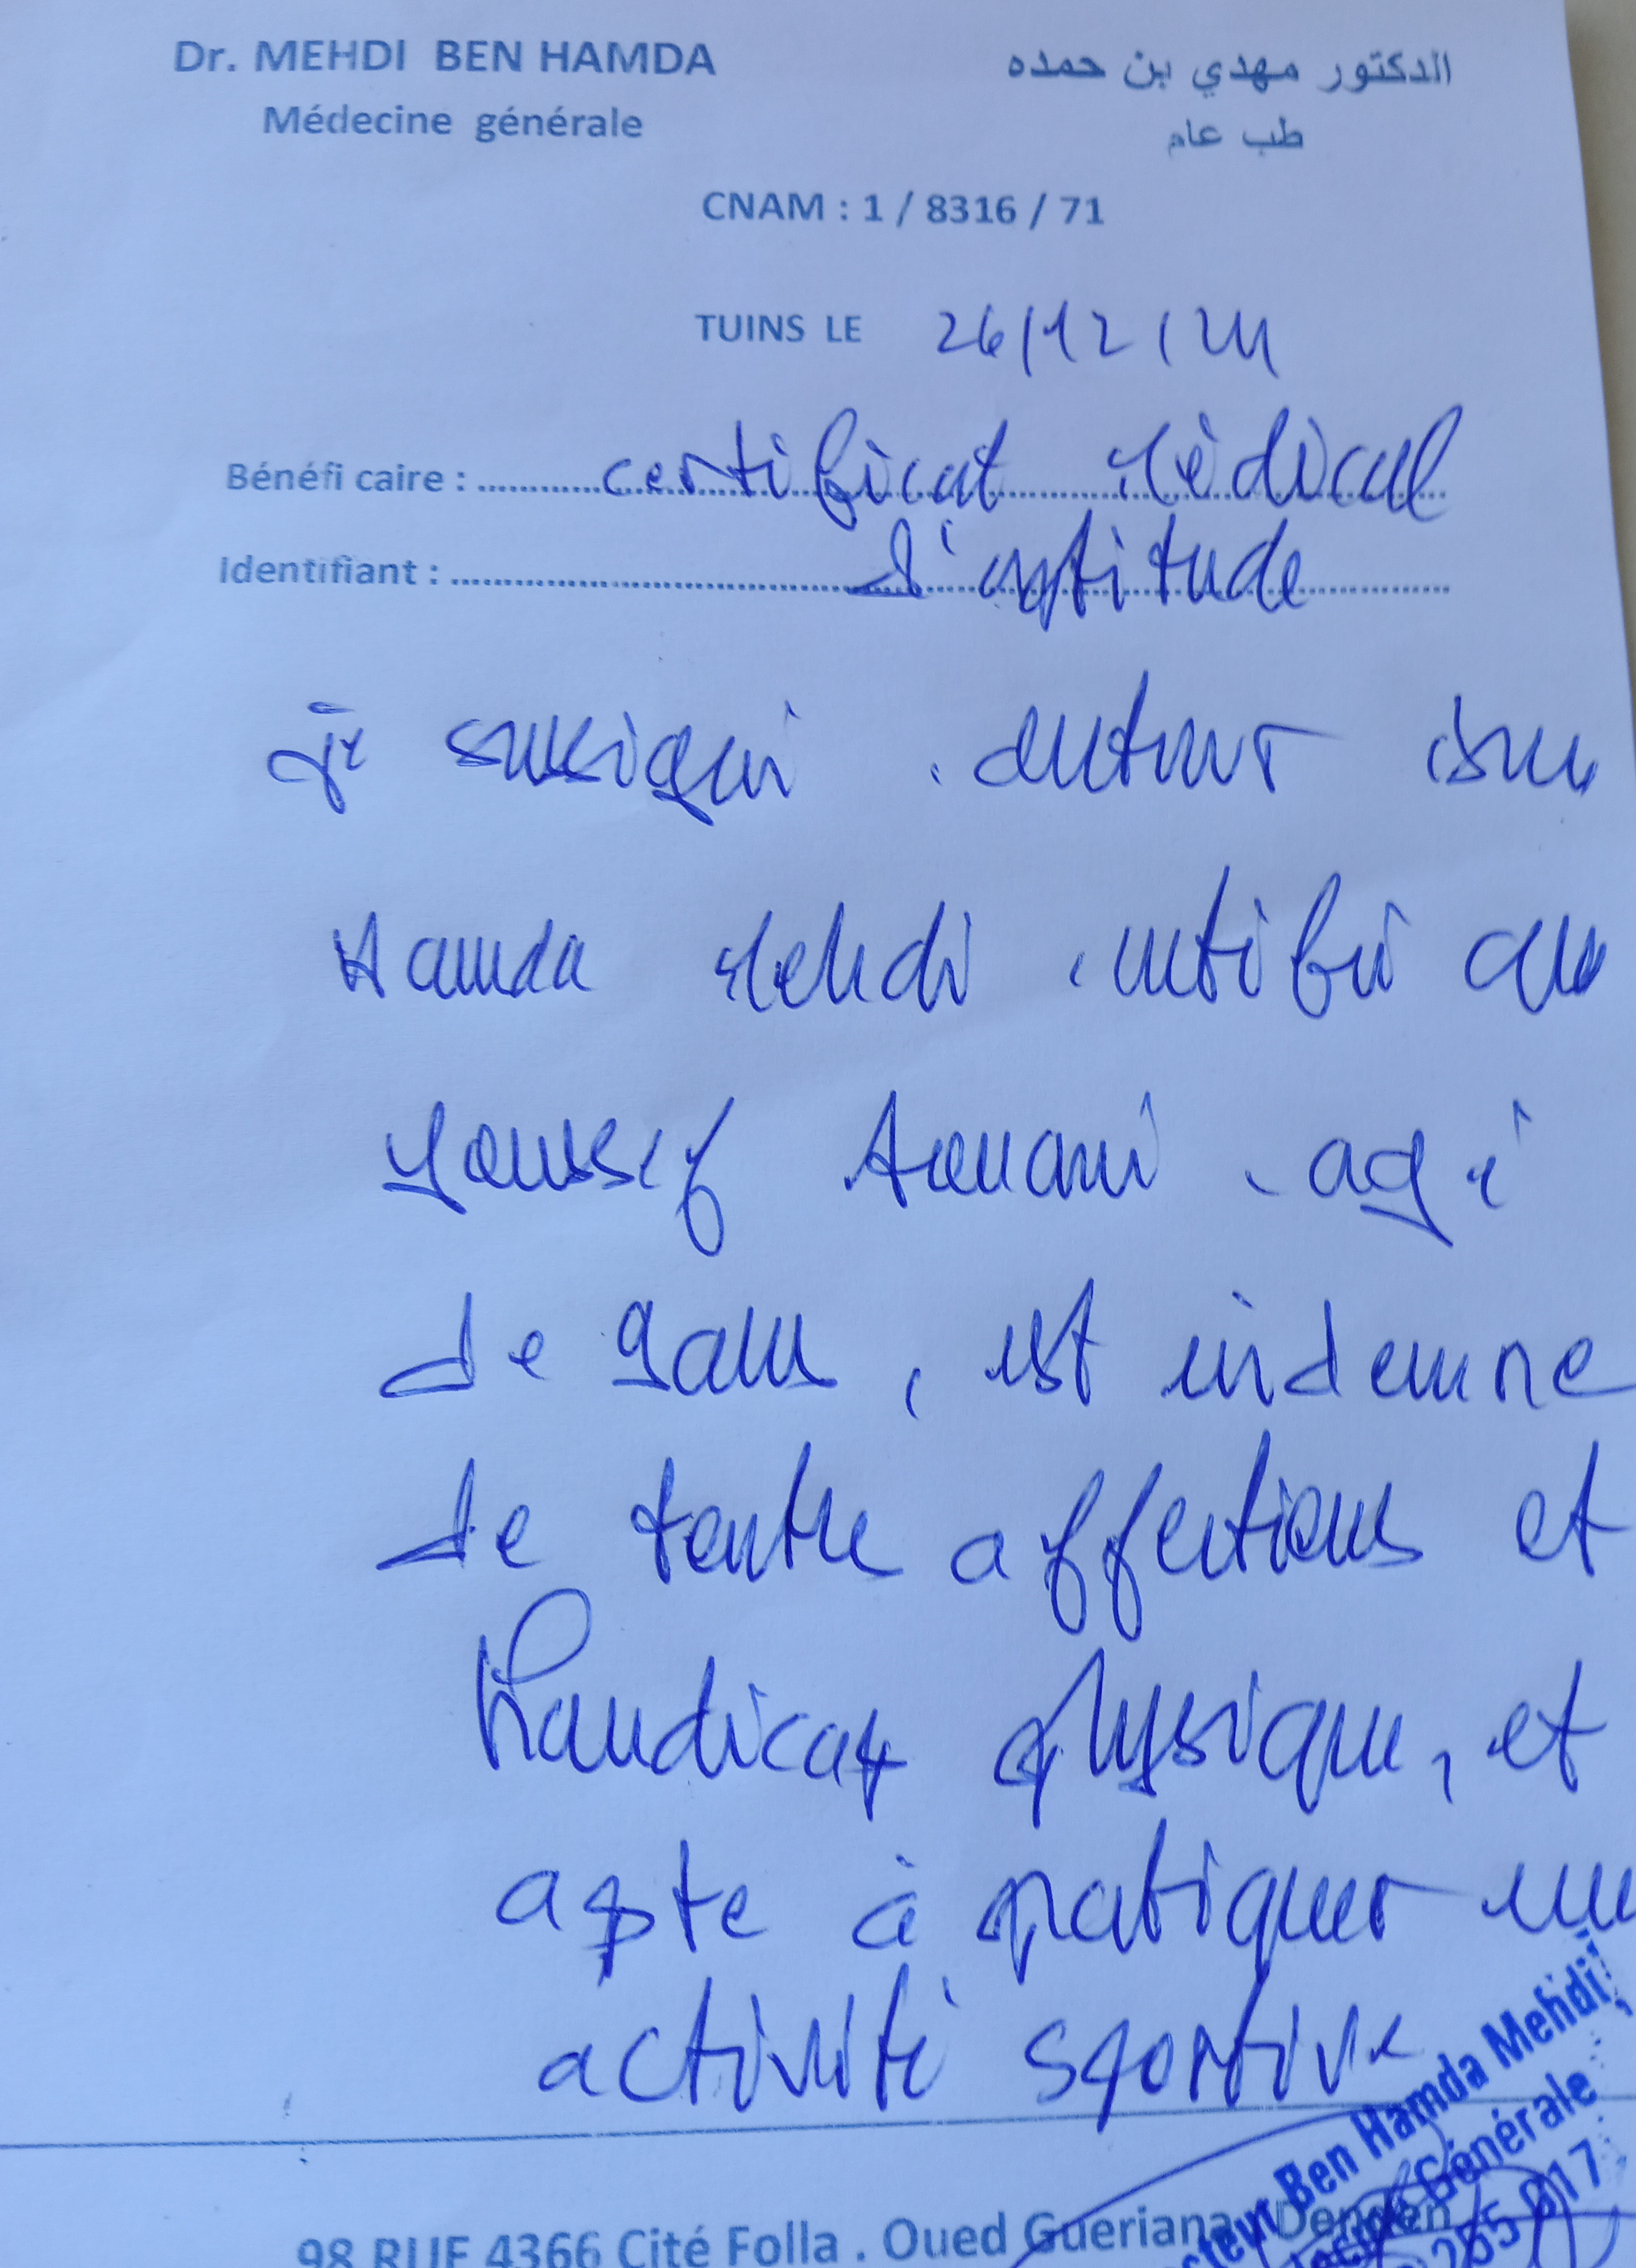 Dr. MEHDI BEN HAMDA
الدكتور مهدي بن حمده
Médecine générale
طب عام
CNAM : 1 / 8316 / 71
TUINS LE 26/12/24
Bénéfi caire : certificat Médical
Identifiant : d'aptitude
Je soussigné docteur Ben
Hamda Mehdi certifie que
Youssef Aouani agé
de 9 ans, est indemne
de toute affections et
handicap physique, et
apte à pratiquer une
activité sportive
Docteur Ben Hamda Mehdi
Générale
98 RUE 4366 Cité Folla . Oued Gueriana Denden